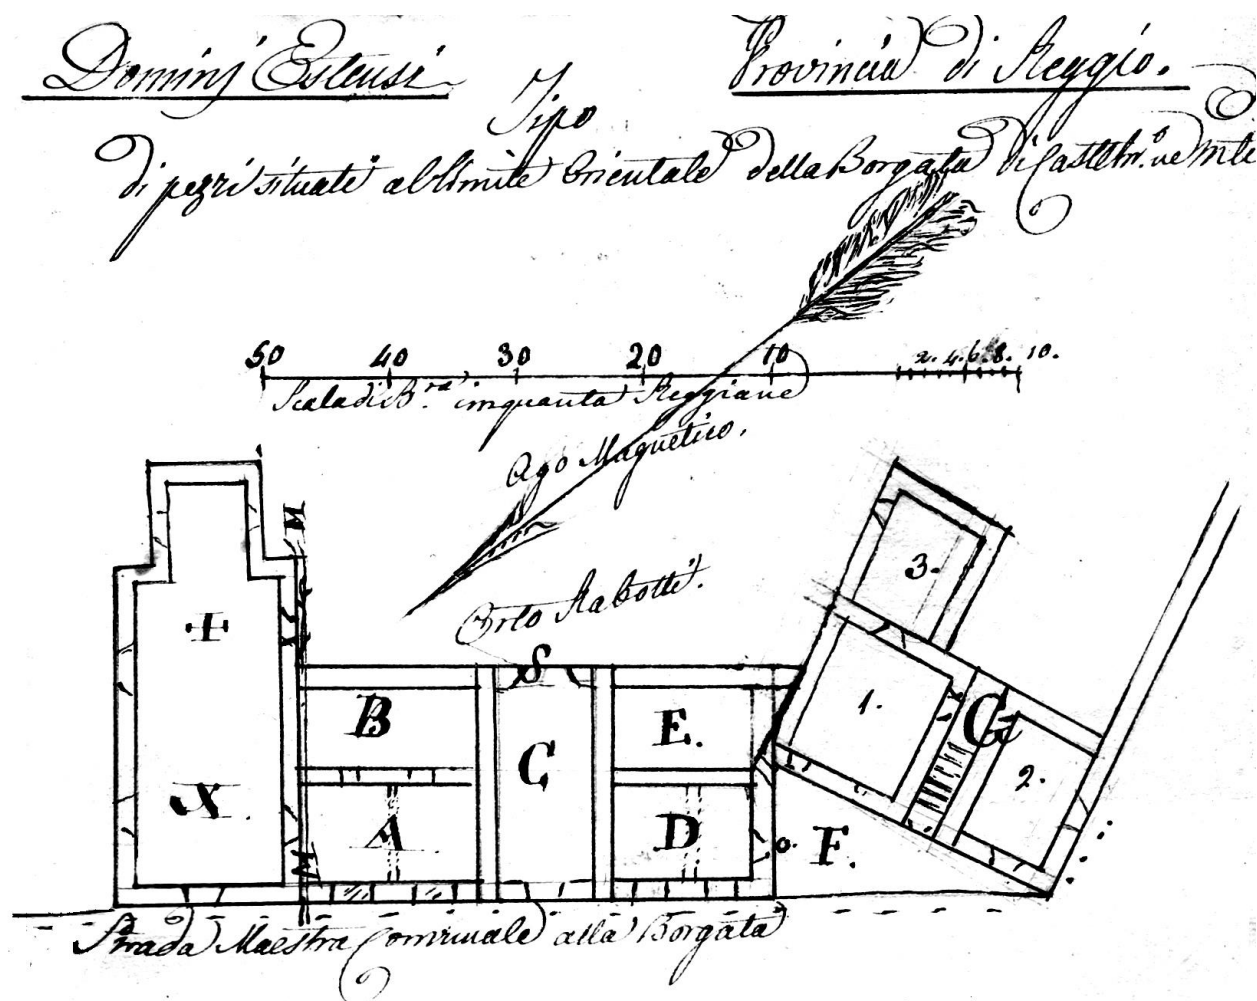 Dominj Estensi
Provincia di Reggio.
Tipo
di pezzi situati al limite Orientale della Borgata di
50 40 30 20 10 2. 4. 6. 8. 10.
Scala di B.ra cinquanta Reggiane
Ago Magnetico.
Orto Rabotti.
M
+
S
3.
B
E.
C
1.
G
2.
N.
A
D
o.
F.
M
Strada Maestra Comunale alla Borgata